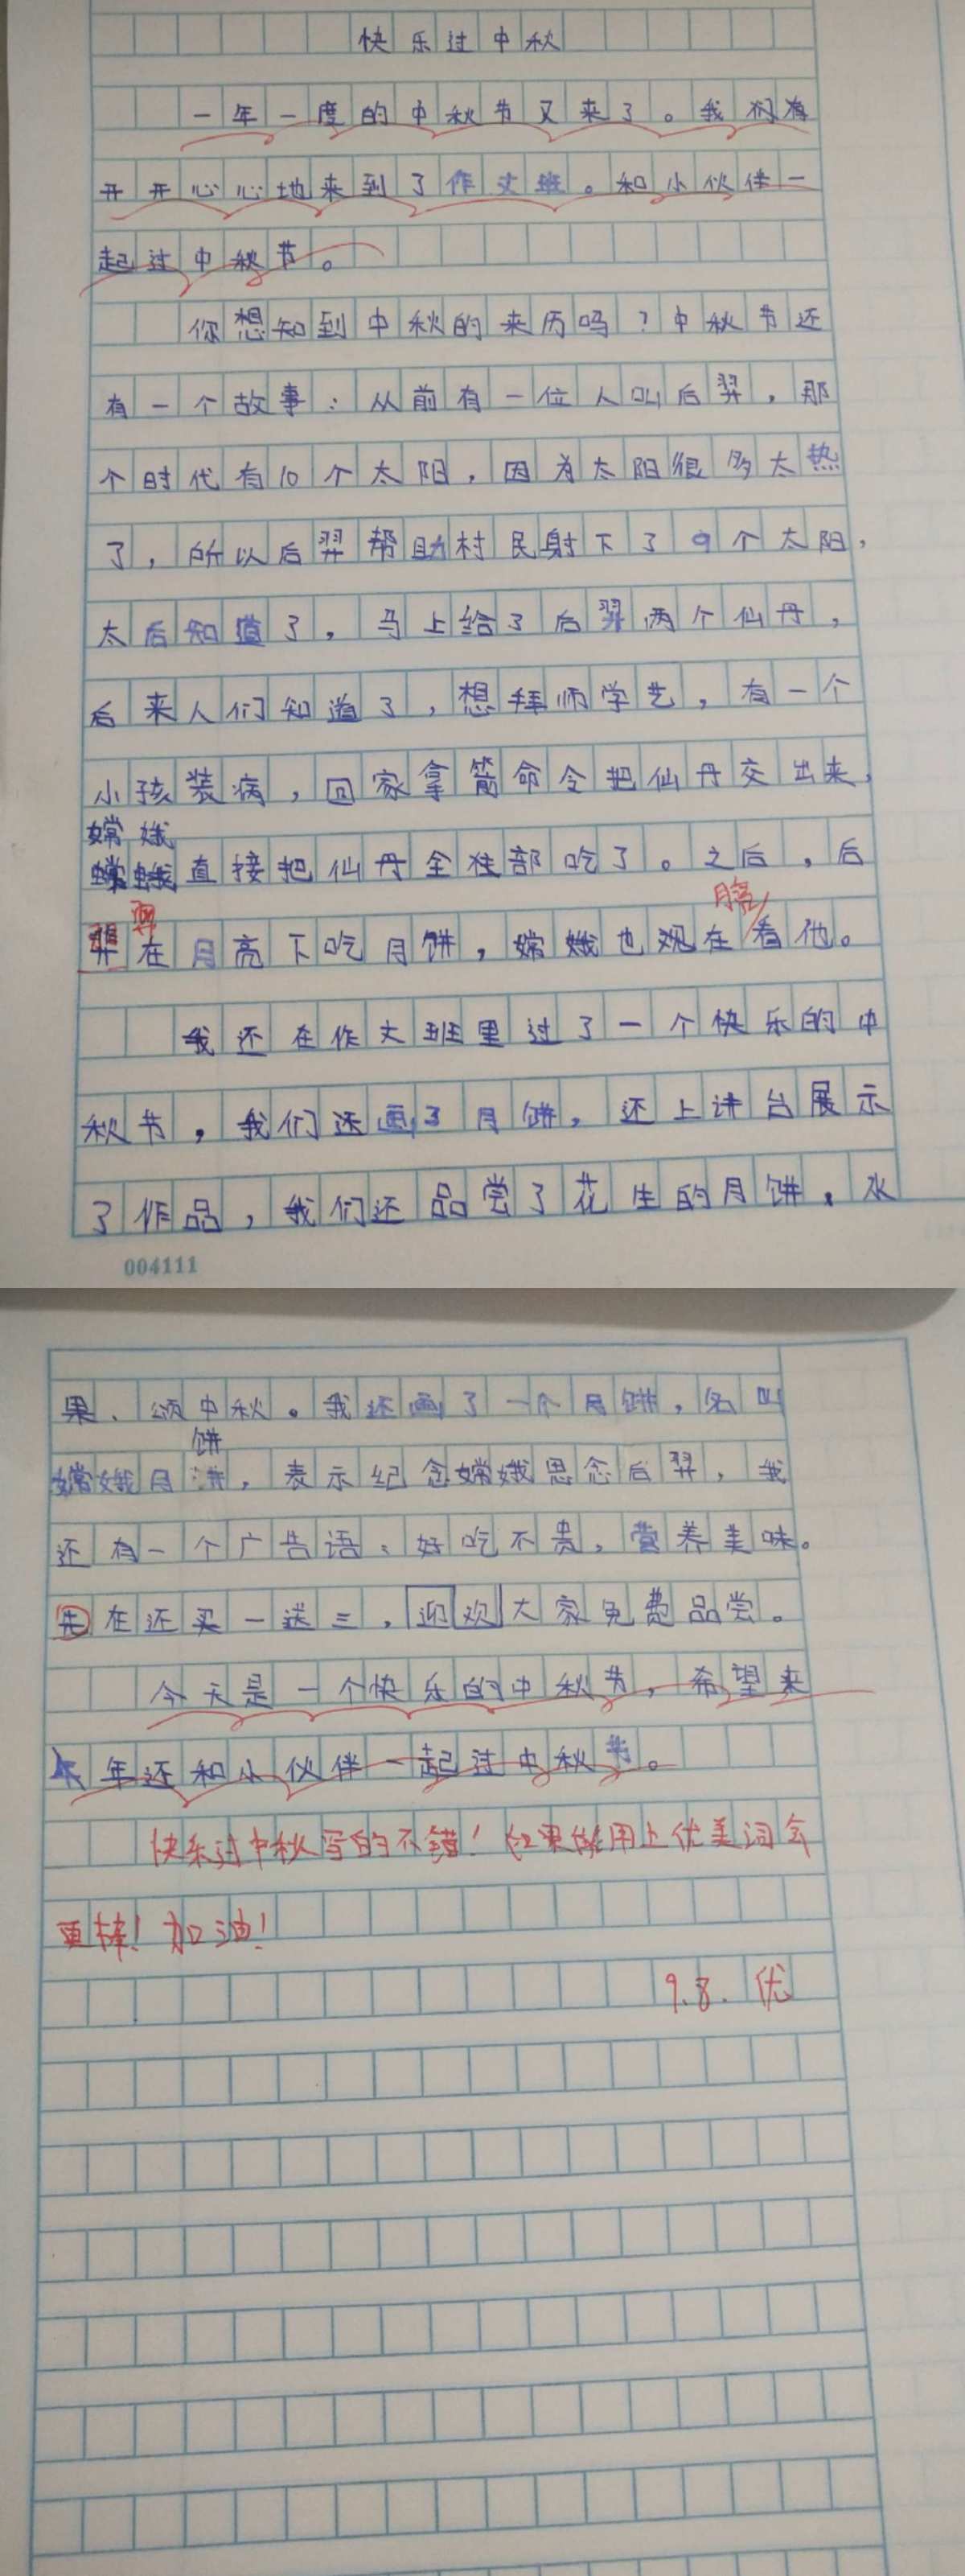 快乐过中秋
一年一度的中秋节又来了。我们有
开开心心地来到了作文班。和小伙伴一
起过中秋节。
你想知到中秋的来历吗？中秋节还
有一个故事：从前有一位人叫后羿，那
个时代有10个太阳，因为太阳很多太热
了，所以后羿帮助村民射下了9个太阳，
太后知道了，马上给了后羿两个仙丹，
后来人们知道了，想拜师学艺，有一个
小孩装病，回家拿箭命令把仙丹交出来，
嫦娥
直接把仙丹全部吃了。之后，后
羿在月亮下吃月饼，嫦娥也观在看他。
亮
我还在作文班里过了一个快乐的中
秋节，我们还画了月饼，还上讲台展示
了作品，我们还品尝了花生的月饼，水
004111
果、颂中秋。我还画了一个月饼，名叫
饼
嫦娥月，表示纪念嫦娥思念后羿，我
还有一个广告语、好吃不贵，营养美味。
先在还买一送三，迎欢大家免费品尝。
今天是一个快乐的中秋节，希望来
年还和小伙伴一起过中秋节。
快乐过中秋写的不错！如果能用上优美词会
更棒！加油！
9.8. 优